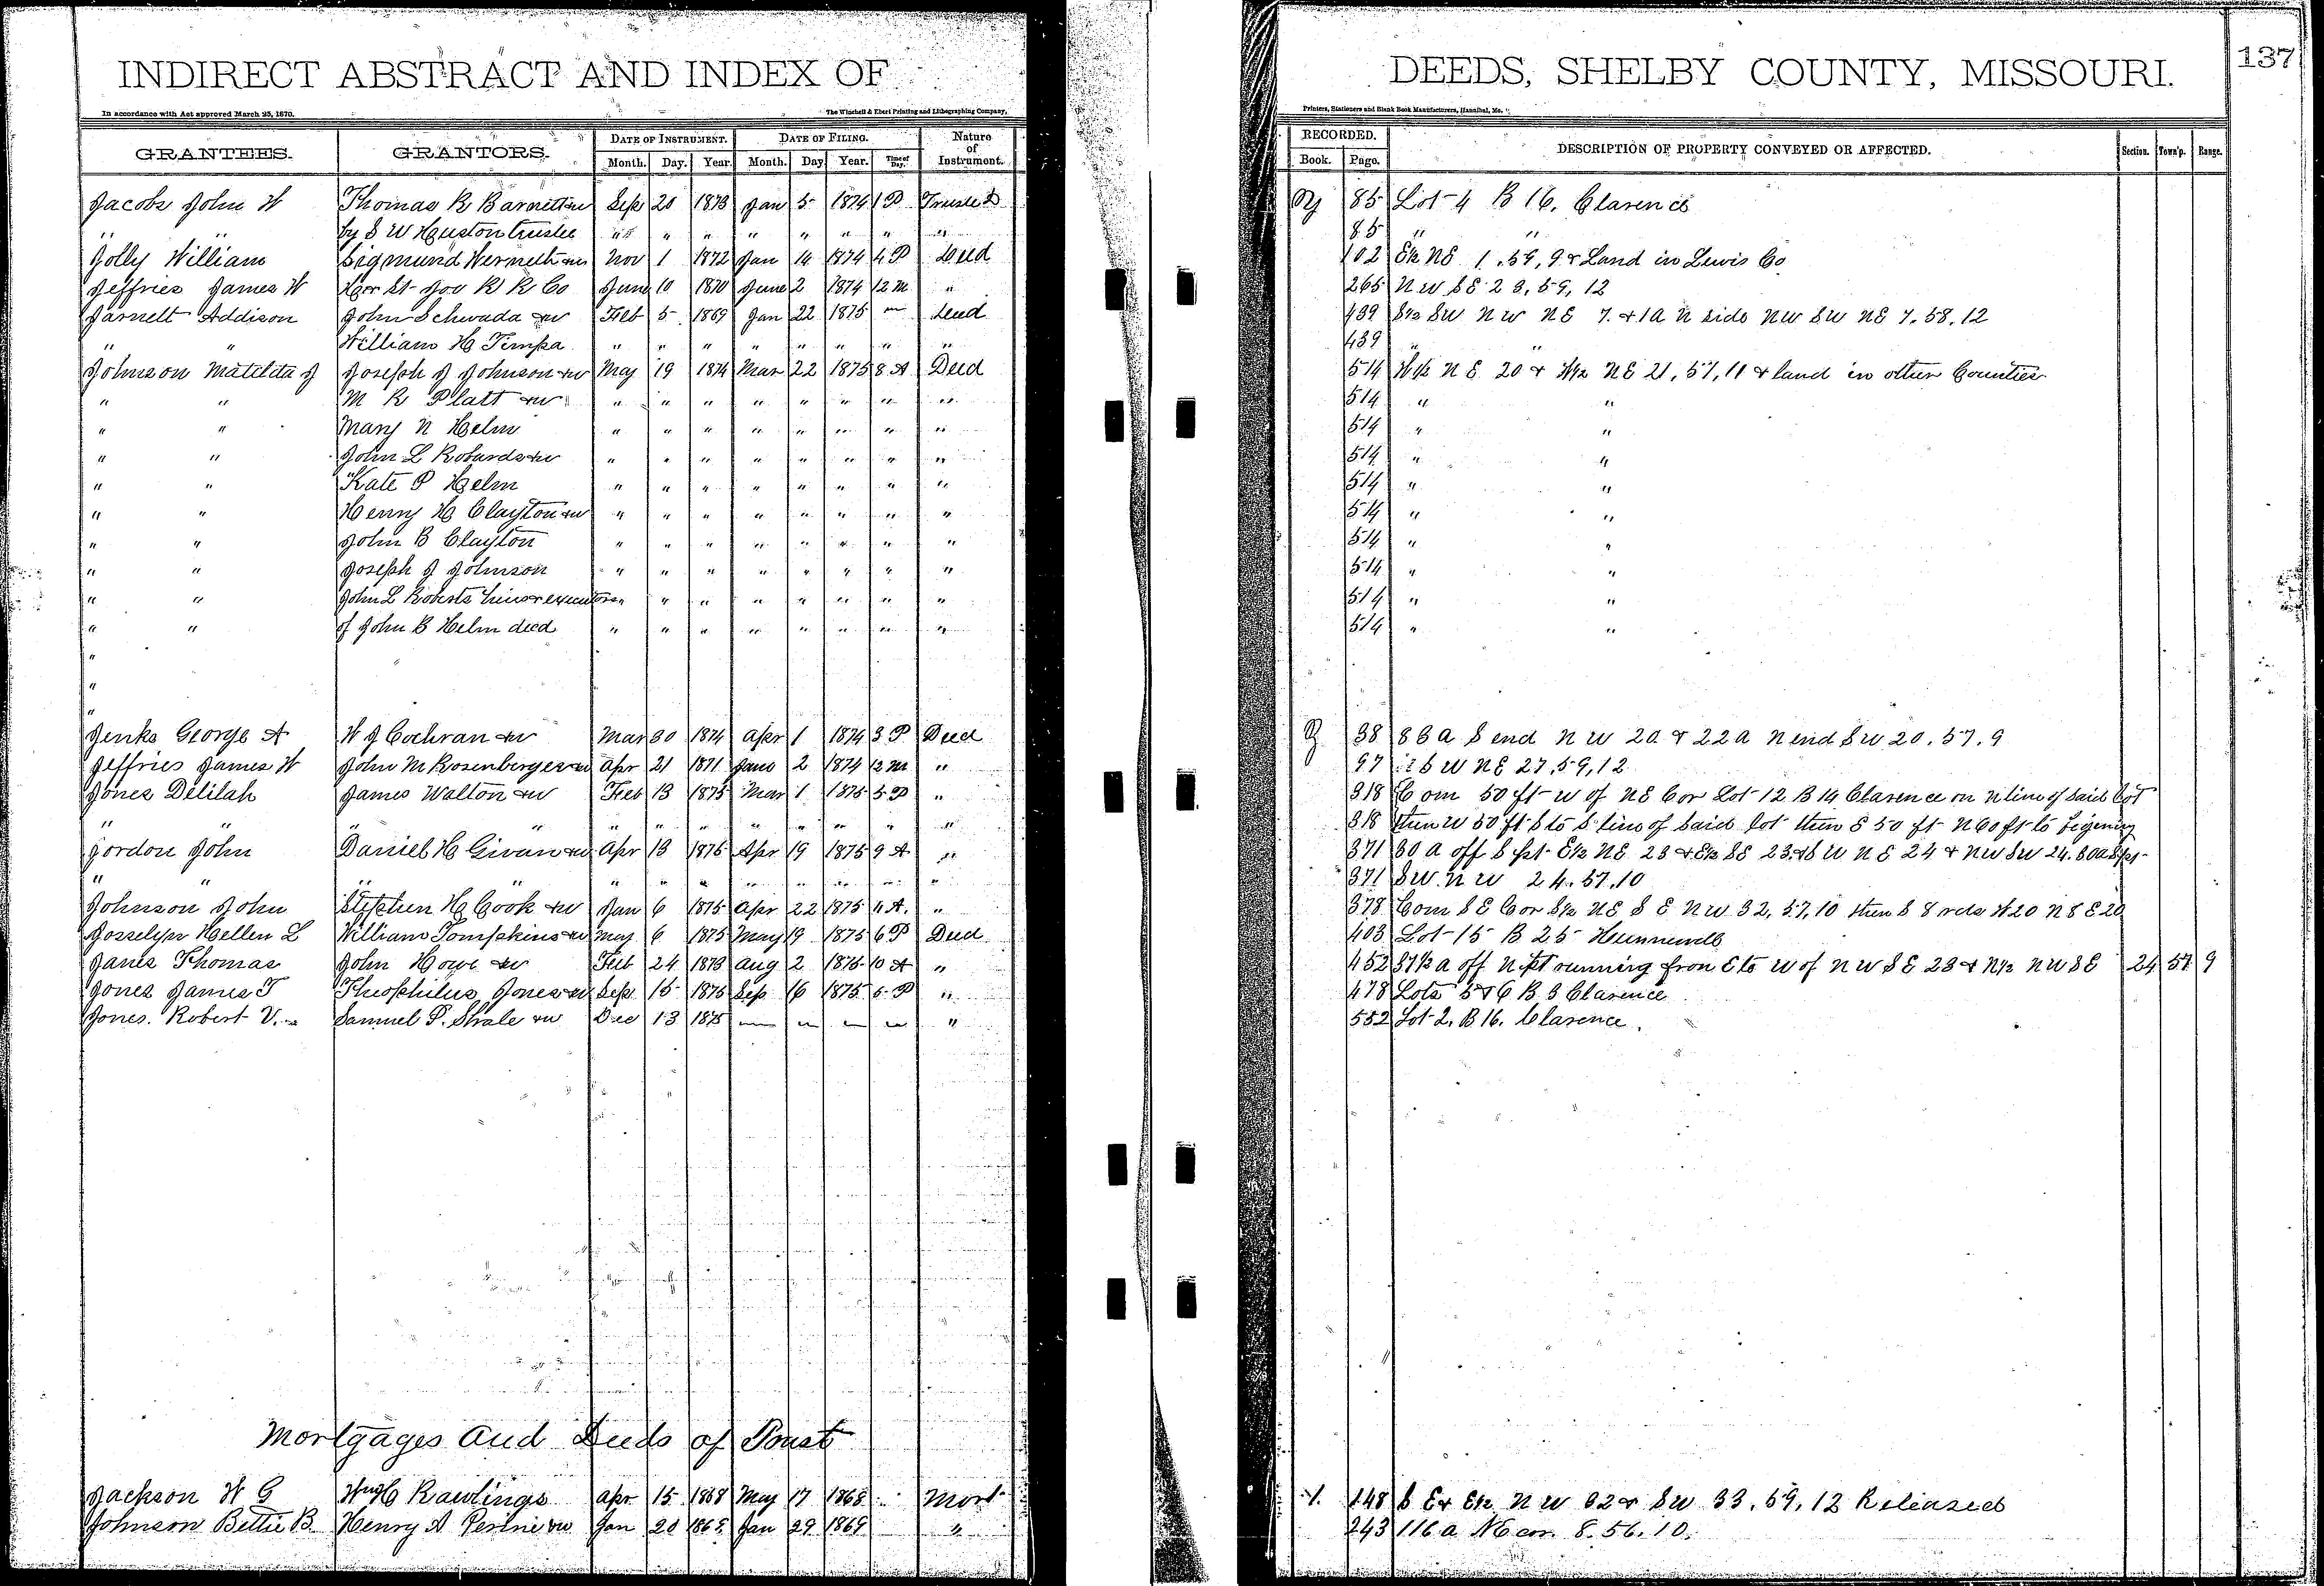 INDIRECT ABSTRACT AND INDEX OF DEEDS, SHELBY COUNTY, MISSOURI. 137
In accordance with Act approved March 25, 1870. The Winchell & Ebert Printing and Lithographing Company, Printers, Stationers and Blank Book Manufacturers, Hannibal, Mo.
GRANTEES. GRANTORS. DATE OF INSTRUMENT. DATE OF FILING. Nature of Instrument. RECORDED. DESCRIPTION OF PROPERTY CONVEYED OR AFFECTED. Section. Town'p. Range.
Month. Day. Year. Month. Day Year. Time of Day. Book. Page.
Jacobs John W Thomas R Barnett Sep 20 1873 Jan 5 1874 1 P Trustee D 85 Lot 4 B 16, Clarence
" " by S W Huston trustee " " " " " " " " 85 " "
Jolly William Sigmund Nov 1 1872 Jan 14 1874 4 P Deed 102 E½ NE 1, 59, 9 & Land in Lewis Co
Jeffries James W Han St Joe R R Co June 10 1870 June 2 1874 12 M " 265 N W SE 28, 59, 12
Jarnett Addison John Schwada &w Feb 5 1869 Jan 22 1875 — Deed 439 S½ SW N W NE 7. & 1 a N side NW SW NE 7, 58, 12
" " William H Timpa " " " " " " " " 439 " "
Johnson Matilda J Joseph J Johnson &w May 19 1874 Mar 22 1875 8 A Deed 514 W½ N E 20 & W½ NE 21, 57, 11 & land in other Counties
" " M R Platt &w " " " " " " " " 514 " "
" " Mary N Helm " " " " " " " " 514 " "
" " John L Robards &w " " " " " " " " 514 " "
" " Kate P Helm " " " " " " " " 514 " "
" " Henry H Clayton &w " " " " " " " " 514 " "
" " John B Clayton " " " " " " " " 514 " "
" " Joseph J Johnson " " " " " " " " 514 " "
" " John L Roberts executors " " " " " " " " 514 " "
" " of John B Helm decd " " " " " " " " 514 " "
"
"
"
Jenks George A W J Cochran &w Mar 30 1874 Apr 1 1874 3 P Deed 38 86 a S end N W 20 & 22 a N end SW 20, 57, 9
Jeffries James W John M Rosenberger &w Apr 21 1871 June 2 1874 12 M " 97 S W NE 27, 59, 12
Jones Delilah James Walton &w Feb 13 1875 Mar 1 1875 5 P " 318 Com 50 ft W of NE Cor Lot 12 B 14 Clarence on N line of said lot
" " " " " " " " " " 318 then W 50 ft S to S line of said lot then E 50 ft N 60 ft to begening
Jordon John Daniel H Givan &w Apr 13 1875 Apr 19 1875 9 A " 371 30 a off S pt E½ NE 23 & E½ SE 23 & S W N E 24 & NW SW 24. 30 a S pt
" " " " " " " " " " 371 SW N W 24. 57. 10
Johnson John Stephen H Cook &w Jan 6 1875 Apr 22 1875 11 A. " 378 Com S E Cor S½ NE S E NW 32, 57, 10 then S 8 rds W 20 N 8 E 20
Josselyn Hellen L William Tompkins &w May 6 1875 May 19 1875 6 P Deed 403 Lot 15 B 25 Hunnewell
Janes Thomas John Howe &w Feb 24 1873 Aug 2 1875 10 A " 452 37½ a off N pt running from E to W of N W SE 23 & N½ NW SE 24 57 9
Jones James T Theophilus Jones &w Sep 15 1875 Sep 16 1875 5 P " 478 Lots 5 & 6 B 3 Clarence
Jones. Robert V. Samuel P. Strale &w Dec 13 1875 — — — — " 552 Lot 2, B 16, Clarence.
Mortgages and Deeds of Trust
Jackson W G Wm H Rawlings Apr 15 1868 May 17 1868 Mort 148 N W 32 & SW 33, 59, 12 Released
Johnson Bettie B Henry A &w Jan 20 1868 Jan 29 1869 " 243 116 a NE cor. 8. 56. 10.